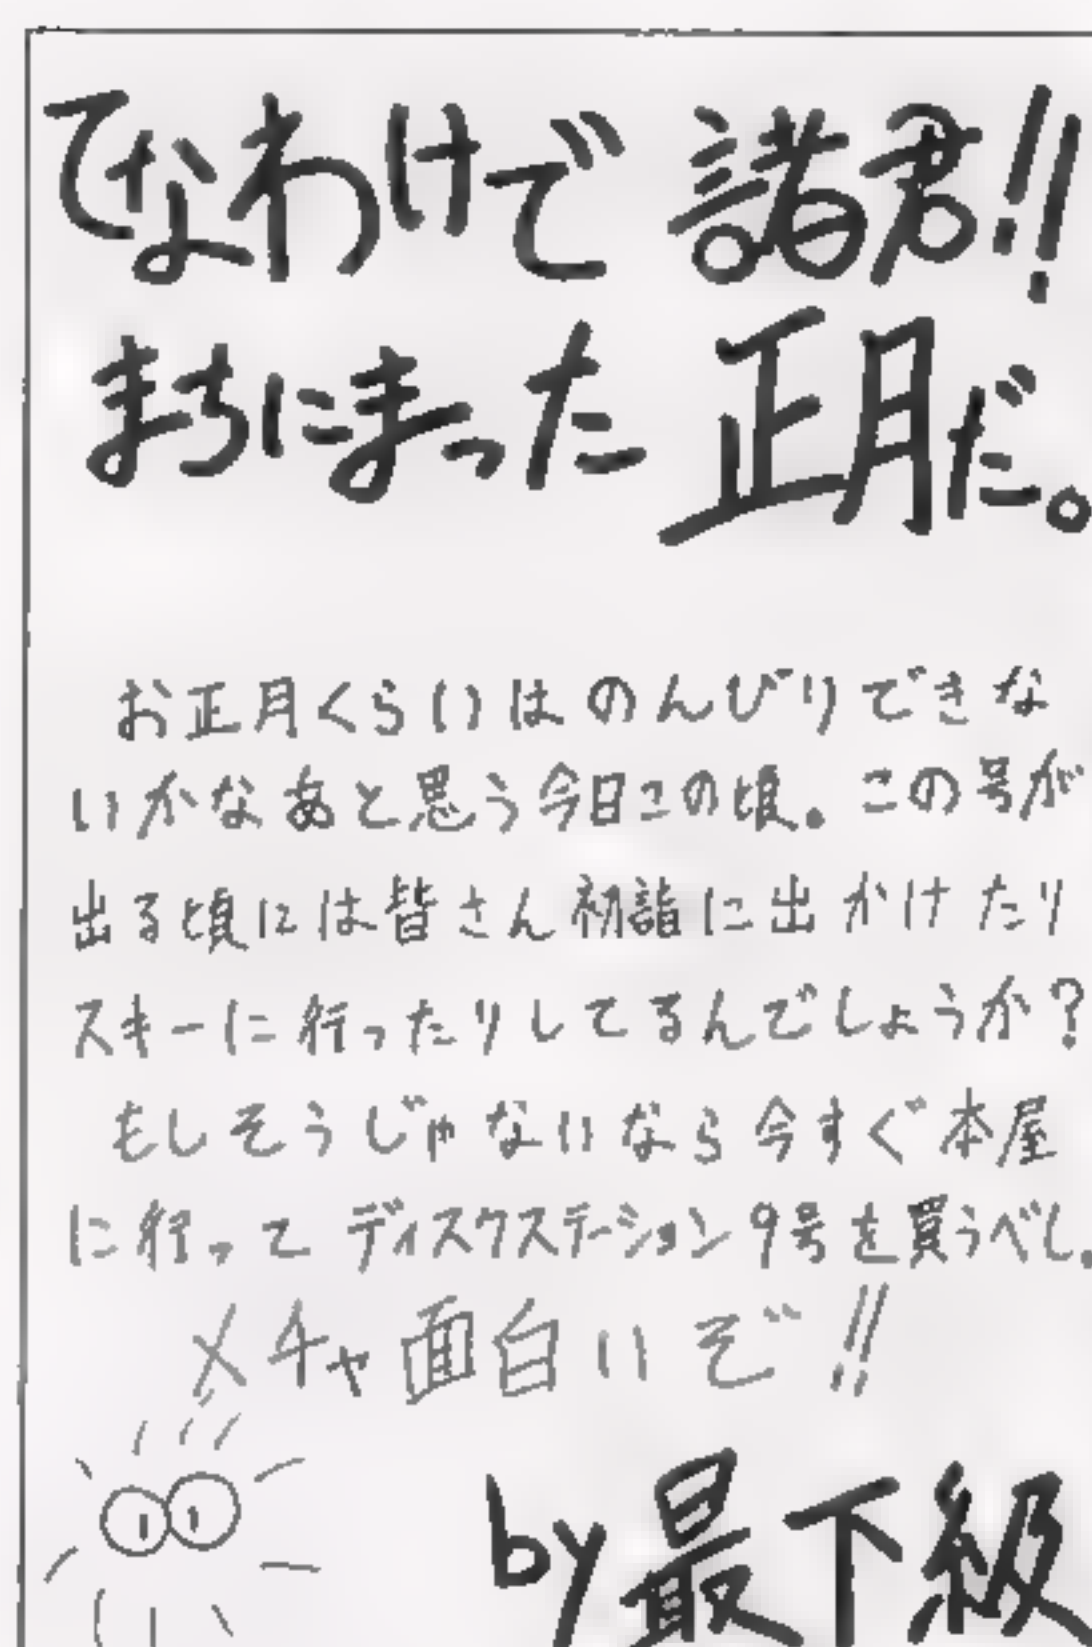 てなわけで 諸君!!
まちにまった 正月だ。
お正月くらいは のんびりできな
いかなあと思う今日この頃。この号が
出る頃には皆さん 初詣に出かけたり
スキーに行ったりしてるんでしょうか?
もしそうじゃないなら今すぐ本屋
に行って ディスクステーション9号を買うべし。
メチャ面白いぞ!!
by 最下級